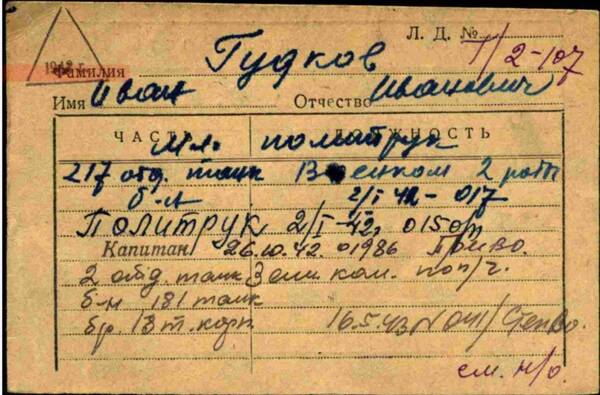 Л. Д. № 1/2-107
1942 г.
Фамилия Гудков
Имя Иван Отчество Иванович
ЧАСТЬ ДОЛЖНОСТЬ
Мл. политрук
217 отд. танк Военком 2 роты
б-н 2/I 42 - 017
Политрук 2/I-42г. 015
Капитан 26.10.42. 01986
2 отд. танк Зам. ком. по п/ч.
б-н 181 танк
бр 18 т. корп 16.5.43 N 041/
см. н/о.